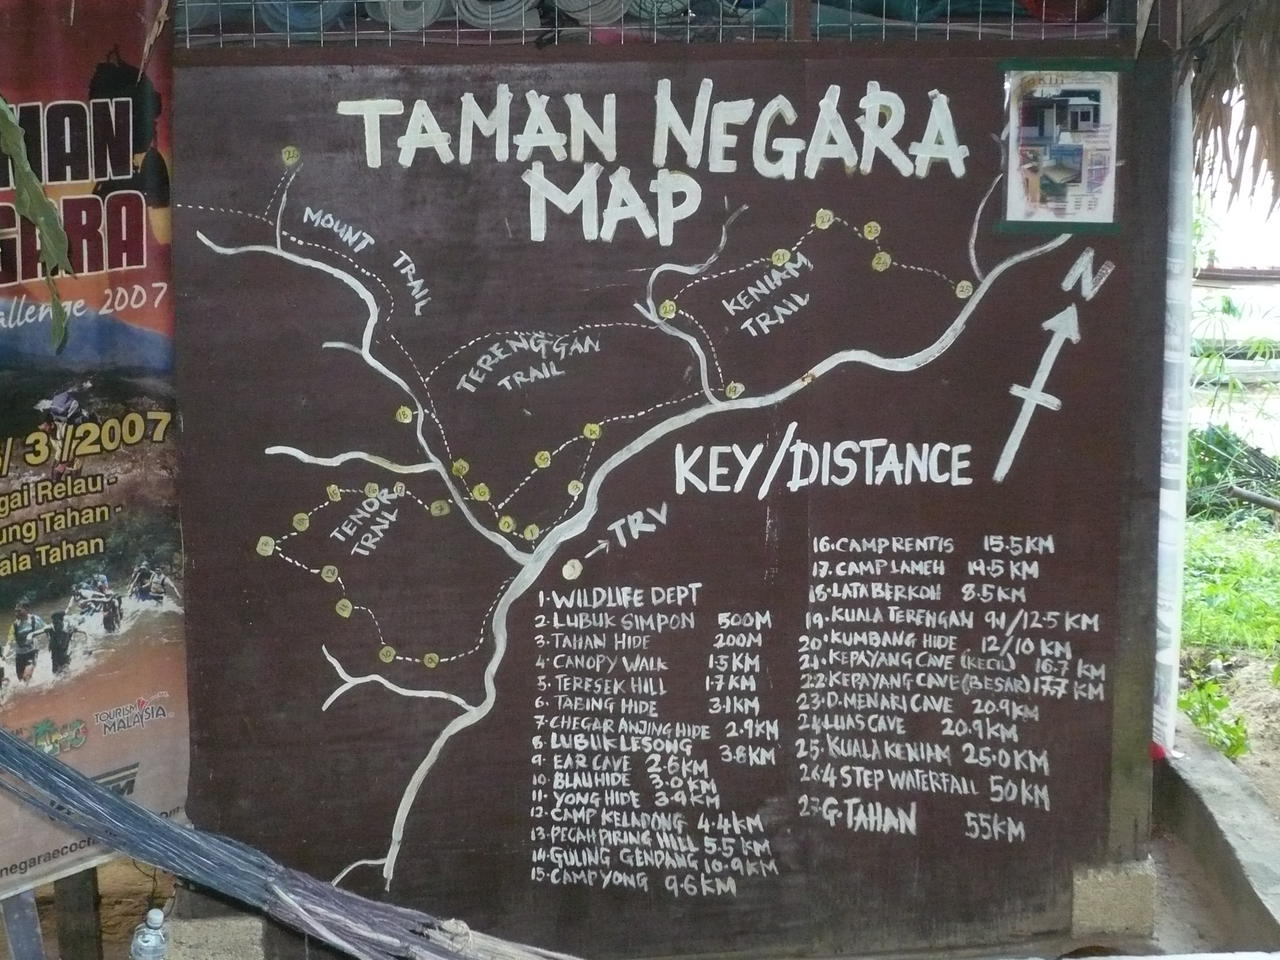 TAMAN NEGARA
MAP
MOUNT TRAIL
TERENGGAN
TRAIL
KENIAM
TRAIL
TENOR
TRAIL
N
KEY/DISTANCE
TRV
1. WILDLIFE DEPT
2. LUBUK SIMPON 500M
3. TAHAN HIDE 200M
4. CANOPY WALK 1.5KM
5. TERESEK HILL 1.7KM
6. TABING HIDE 3.1KM
7. CHEGAR ANJING HIDE 2.9KM
8. LUBUK LESONG 3.8KM
9. EAR CAVE 2.6KM
10. BLAU HIDE 3.0KM
11. YONG HIDE 3.9KM
12. CAMP KELADONG 4.4KM
13. PECAH PIRING HILL 5.5KM
14. GULING GENDANG 10.9KM
15. CAMP YONG 9.6KM
16. CAMP RENTIS 15.5KM
17. CAMP LAMEH 19.5KM
18. LATA BERKOH 8.5KM
19. KUALA TERENGAN 9.1/12.5KM
20. KUMBANG HIDE 12/10KM
21. KEPAYANG CAVE (KECIL) 16.7KM
22. KEPAYANG CAVE (BESAR) 17.7KM
23. D. MENARI CAVE 20.9KM
24. LUAS CAVE 20.9KM
25. KUALA KENIAM 25.0KM
26. 4 STEP WATERFALL 50KM
27. G. TAHAN 55KM
HAN
GARA
allenge 2007
/ 3 /2007
gai Relau -
ung Tahan -
ala Tahan
TOURISM
MALAYSIA
negaraecoch